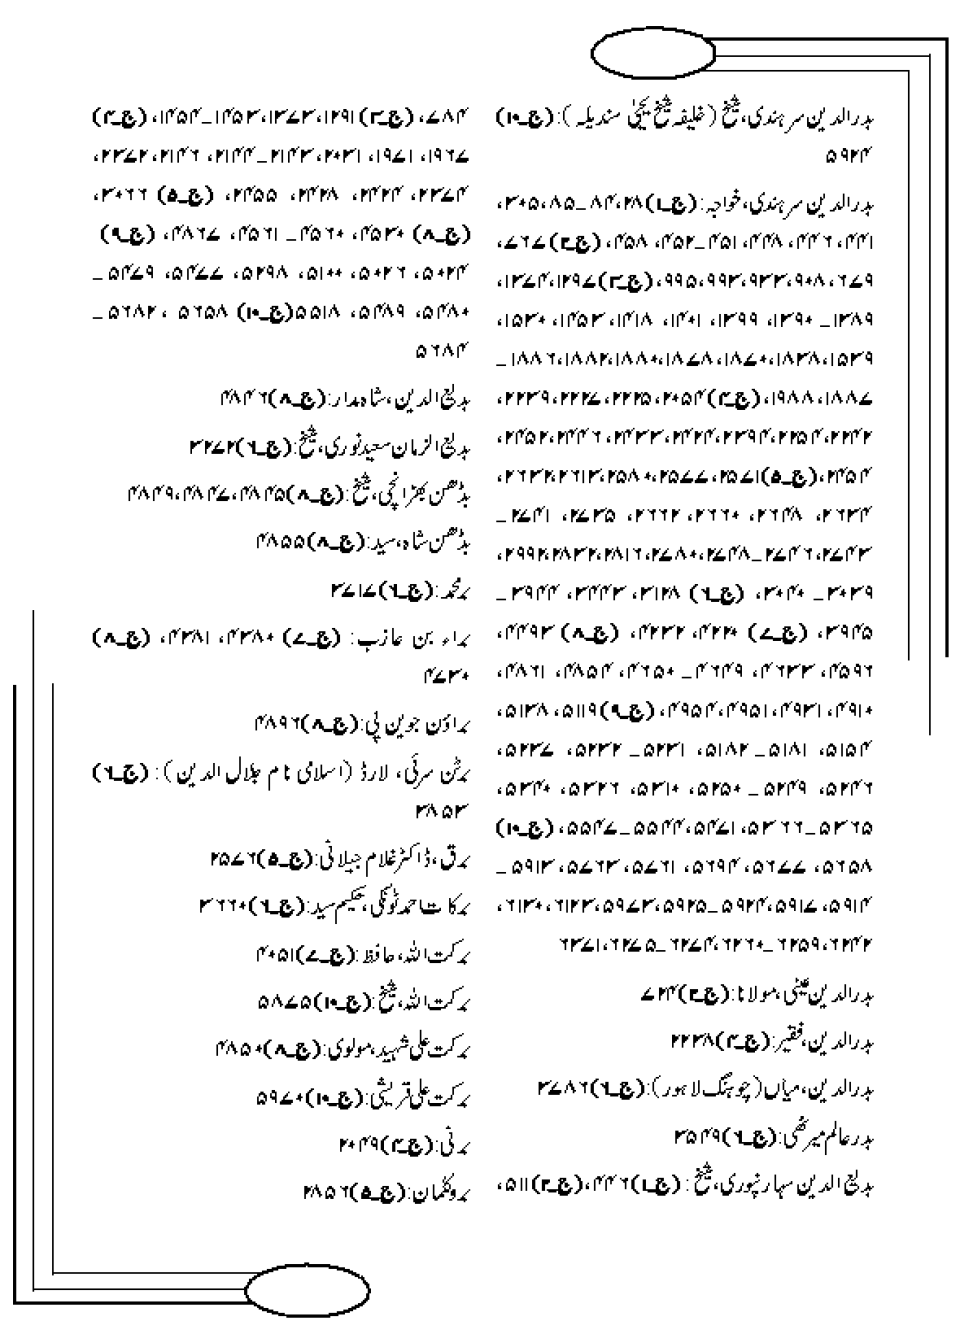 بدرالدین سرہندی، شیخ (خلیفہ شیخ یحییٰ مندیلہ): (ج۔۱۰)
۵۹۲۴
بدرالدین سرہندی، خواجہ: (ج۔۱) ۲۸، ۸۴۔۸۵، ۳۰۵،
۴۴۱، ۴۴۶، ۴۴۸، ۴۵۱۔۴۵۲، ۴۵۸، (ج۔۲) ۶۷۶،
۶۷۹، ۸۰۹، ۹۳۳، ۹۹۳، ۹۹۵، (ج۔۳) ۱۲۹۷، ۱۳۷۴،
۱۳۸۹۔۱۳۹۰، ۱۳۹۹، ۱۴۰۱، ۱۴۱۸، ۱۴۵۳، ۱۵۳۰،
۱۵۳۹، ۱۸۳۸، ۱۸۷۰، ۱۸۷۸، ۱۸۸۰، ۱۸۸۲، ۱۸۸۶۔
۱۸۸۷، ۱۹۸۸، (ج۔۴) ۲۰۵۴، ۲۲۲۵، ۲۲۲۷، ۲۲۳۹،
۲۲۴۲، ۲۲۵۴، ۲۳۹۴، ۲۴۲۴، ۲۴۳۳، ۲۴۴۶، ۲۴۵۲،
۲۴۵۴، (ج۔۵) ۲۵۷۱، ۲۵۷۷، ۲۵۸۰، ۲۶۱۳، ۲۶۳۲،
۲۶۳۴، ۲۶۴۸، ۲۶۶۰، ۲۶۶۲، ۲۷۳۵، ۲۷۴۱۔
۲۷۴۳، ۲۷۴۶۔۲۷۴۸، ۲۷۸۰، ۲۸۱۶، ۲۸۳۲، ۲۹۹۲،
۳۰۳۹۔۳۰۴۰، (ج۔۶) ۳۱۲۸، ۳۴۴۳، ۳۹۴۴۔
۳۹۴۵، (ج۔۷) ۴۲۲۰، ۴۲۳۲، (ج۔۸) ۴۴۹۳،
۴۵۹۶، ۴۶۳۳، ۴۶۴۹۔۴۶۵۰، ۴۸۵۴، ۴۸۶۱،
۴۹۱۰، ۴۹۳۱، ۴۹۵۱، ۴۹۵۴، (ج۔۹) ۵۱۱۹، ۵۱۳۸،
۵۱۵۴، ۵۱۸۱۔۵۱۸۲، ۵۲۳۱۔۵۲۳۲، ۵۲۳۷،
۵۲۴۶، ۵۲۴۹۔۵۲۵۰، ۵۳۱۰، ۵۳۲۶، ۵۳۴۰،
۵۳۶۵۔۵۳۶۶، ۵۴۷۱، ۵۵۴۴۔۵۵۴۷، (ج۔۱۰)
۵۶۵۸، ۵۶۷۷، ۵۶۹۴، ۵۷۶۱، ۵۷۶۳، ۵۷۶۳، ۵۹۱۳۔
۵۹۱۴، ۵۹۱۷، ۵۹۲۴۔۵۹۲۵، ۵۹۷۳، ۶۱۲۳، ۶۱۳۰،
۶۲۴۲، ۶۲۵۹۔۶۲۶۰، ۶۲۷۴۔۶۲۷۵، ۶۳۷۱
بدرالدین عینی، مولانا: (ج۔۲) ۷۲۴
بدرالدین، فقیر: (ج۔۴) ۲۲۳۸
بدرالدین، میاں (چوہنگ لاہور): (ج۔۶) ۳۷۸۶
بدر عالم میرٹھی: (ج۔۶) ۳۵۴۹
بدیع الدین سہارنپوری، شیخ: (ج۔۱) ۴۴۶، (ج۔۲) ۵۱۱،
۷۸۴، (ج۔۳) ۱۲۹۱، ۱۳۷۳، ۱۴۵۳۔۱۴۵۴، (ج۔۴)
۱۹۶۷، ۱۹۷۱، ۲۰۳۱، ۲۱۴۳۔۲۱۴۴، ۲۱۴۶، ۲۳۷۲،
۲۳۷۴، ۲۴۲۴، ۲۴۲۸، ۲۴۵۵، (ج۔۵) ۳۰۶۶،
(ج۔۸) ۴۵۳۰، ۴۵۶۰۔۴۵۶۱، ۴۸۶۷، (ج۔۹)
۵۰۲۴، ۵۰۲۶، ۵۱۰۰، ۵۲۹۸، ۵۴۷۷، ۵۴۷۹۔
۵۴۸۰، ۵۴۸۹، ۵۵۱۸ (ج۔۱۰) ۵۶۵۸، ۵۶۸۲۔
۵۶۸۴
بدیع الدین، شاہ مدار: (ج۔۸) ۴۸۴۶
بدیع الزمان سعید نوری، شیخ: (ج۔۶) ۳۲۷۲
بڈھن بھڑائچی، شیخ: (ج۔۸) ۴۸۴۵، ۴۸۴۷، ۴۸۴۹
بڈھن شاہ، سید: (ج۔۸) ۴۸۵۵
برمحمد: (ج۔۶) ۳۷۱۷
براء بن عازب: (ج۔۷) ۴۳۸۰، ۴۳۸۱، (ج۔۸)
۴۷۳۰
براؤن جوین پی: (ج۔۸) ۴۸۹۶
برٹن سرئی، لارڈ (اسلامی نام جلال الدین): (ج۔۶)
۳۸۵۳
برق، ڈاکٹر غلام جیلانی: (ج۔۵) ۲۵۷۶
برکات احمد ٹونکی، حکیم سید: (ج۔۶) ۳۶۶۰
برکت اللہ، حافظ: (ج۔۷) ۴۰۵۱
برکت اللہ، شیخ: (ج۔۱۰) ۵۸۷۵
برکت علی شہید، مولوی: (ج۔۸) ۴۸۵۰
برکت علی قریشی: (ج۔۱۰) ۵۹۷۰
برنی: (ج۔۴) ۲۰۴۹
بروکلمان: (ج۔۵) ۲۸۵۶